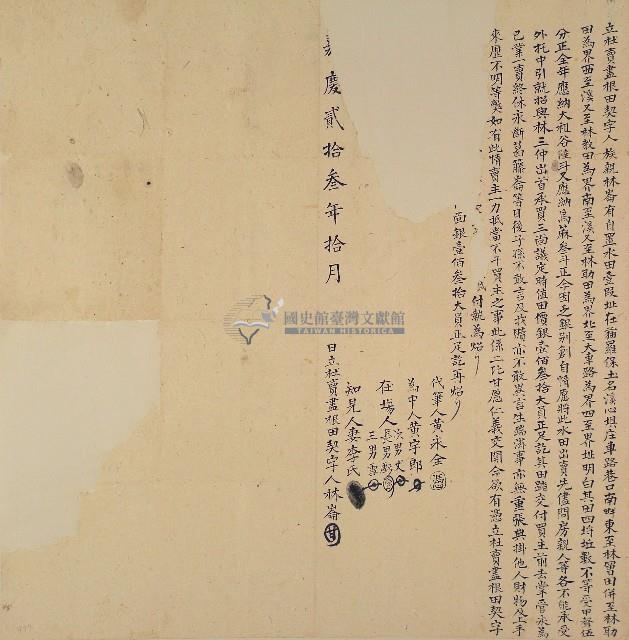 立杜賣盡根田契字人族親林崙有自置水田壹段址在貓羅保土名溪埧庄車路巷口南畔東至林習田併至林助
田為界西至溪又至林教田為界南至溪又至林助田為界北至大車路為界四至界址明白其田四埒坵數不等受甲
分正全年應納大租谷陸斗又應納烏蔴叁斗正今因乏銀別創自情愿將此水田出賣先儘問房親人等各不能承受
外托中引就招與林三仲出首承買三面議定時值田價銀壹佰叁拾大員正足訖其田踏交付買主前去掌管永為
己業一賣終休永斷葛藤崙等日後子孫不敢言及找贖亦不敢異言生端滋事亦無重張典掛他人財物及上手
來歷不明等弊如有此情賣主一力抵當不干買主之事此係二比甘愿仁義交關合欲有憑立杜賣盡根田契字
付執為炤
面銀壹佰叁拾大員正足訖再炤
代筆人黃永金
為中人黃宇郎
次男丈
在場人長男
三男
知見人妻李氏
嘉慶貳拾叁年拾月 日立杜賣盡根田契字人林崙
國史館臺灣文獻館
TAIWAN HISTORICA